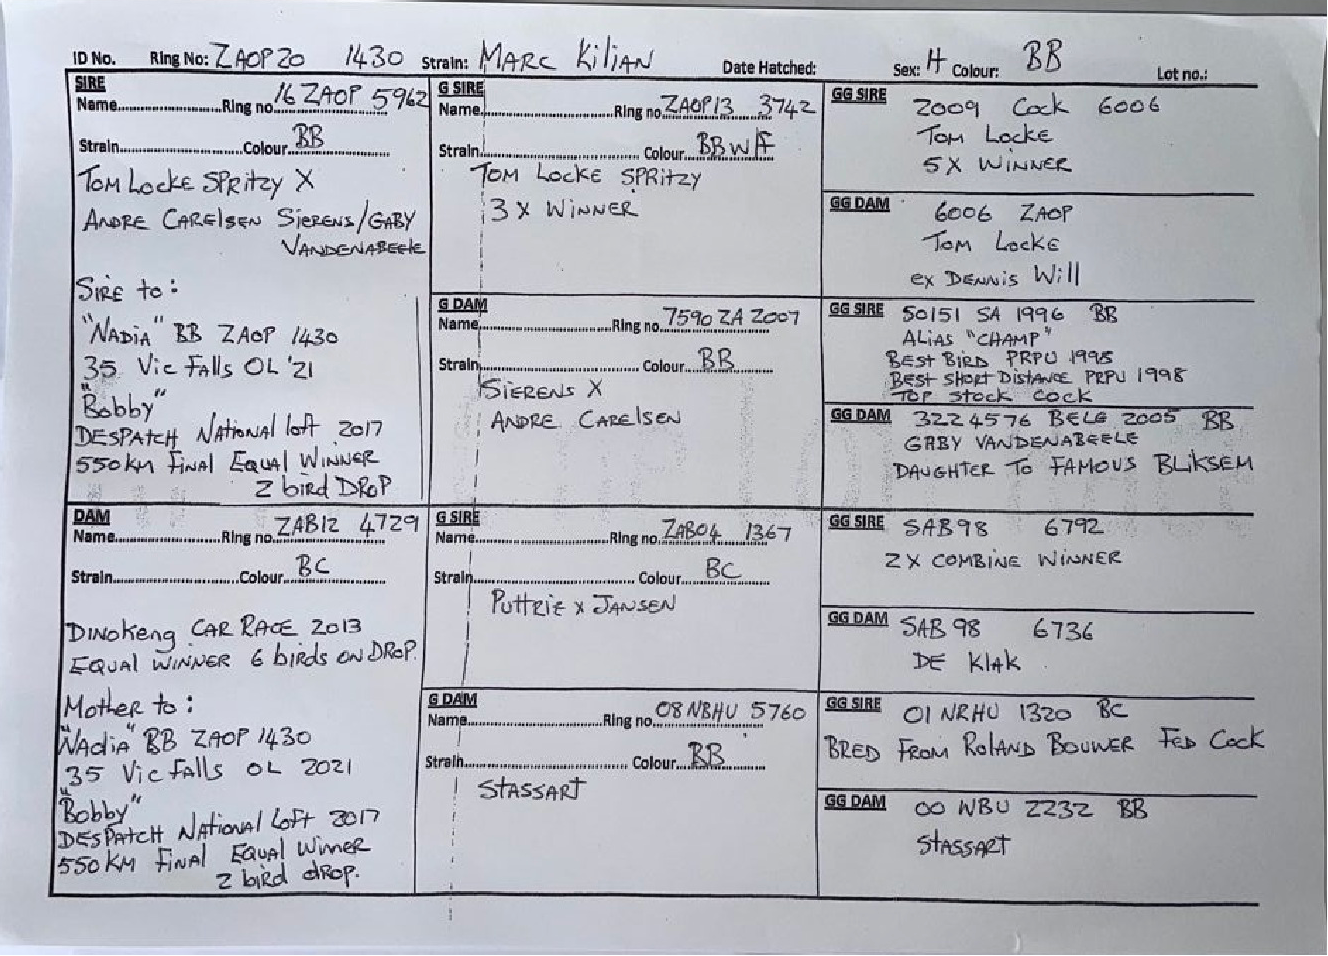 ID No. Ring No: ZAOP 20 1430 Strain: MARC KiLiAN Date Hatched: Sex: H Colour: BB Lot no.:
SIRE
Name Ring no. 16 ZAOP 5962
Strain Colour BB
TOM LOCKE SPRITZY X
ANDRE CARELSEN SIERENS/GABY
VANDENABEELE
SIRE to:
"NADIA" BB ZAOP 1430
35 Vic FALLS OL '21
"Bobby"
DESPATCH NATIONAL loft 2017
550KM FINAL EQUAL WINNER
2 bird DROP
DAM
Name Ring no. ZAB12 4729
Strain Colour BC
DINOKENG CAR RACE 2013
EQUAL WINNER 6 birds ON DROP.
Mother to:
"NAdiA" BB ZAOP 1430
35 Vic FALLS OL 2021
"Bobby"
DESPATCH NATIONAL Loft 2017
550 KM FINAL EQUAL Winner
2 bird dROP.
G SIRE
Name Ring no. ZAOP13 3742
Strain Colour BBWF
TOM LOCKE SPRITZY
3 X WINNER
G DAM
Name Ring no. 7590 ZA 2007
Strain Colour BB
SIERENS X
ANDRE CARELSEN
G SIRE
Name Ring no. ZAB04 1367
Strain Colour BC
PUTTRIE X JANSEN
G DAM
Name Ring no. 08 NBHU 5760
Strain Colour BB
STASSART
GG SIRE 2009 Cock 6006
TOM LOCKE
5 X WINNER
GG DAM 6006 ZAOP
TOM LOCKE
ex DENNIS Will
GG SIRE 50151 SA 1996 BB
ALIAS "CHAMP"
BEST BIRD PRPU 1998
BEST SHORT DISTANCE PRPU 1998
TOP STOCK COCK
GG DAM 3224576 BELG 2005 BB
GABY VANDENABEELE
DAUGHTER TO FAMOUS BLIKSEM
GG SIRE SAB98 6792
2 X COMBINE WINNER
GG DAM SAB 98 6736
DE KLAK
GG SIRE 01 NRHU 1320 BC
BRED FROM ROLAND BOUWER FED COCK
GG DAM 00 WBU 2232 BB
STASSART